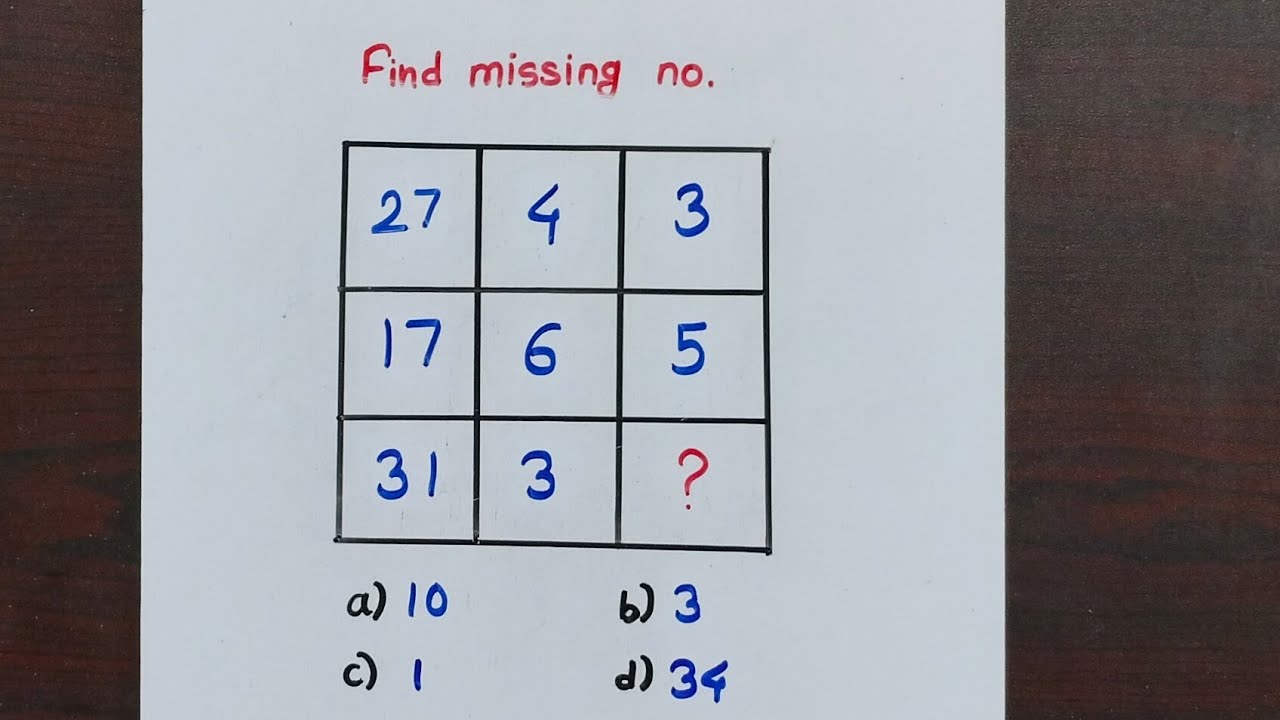 Find missing no.
27 4 3
17 6 5
31 3 ?
a) 10 b) 3
c) 1 d) 34